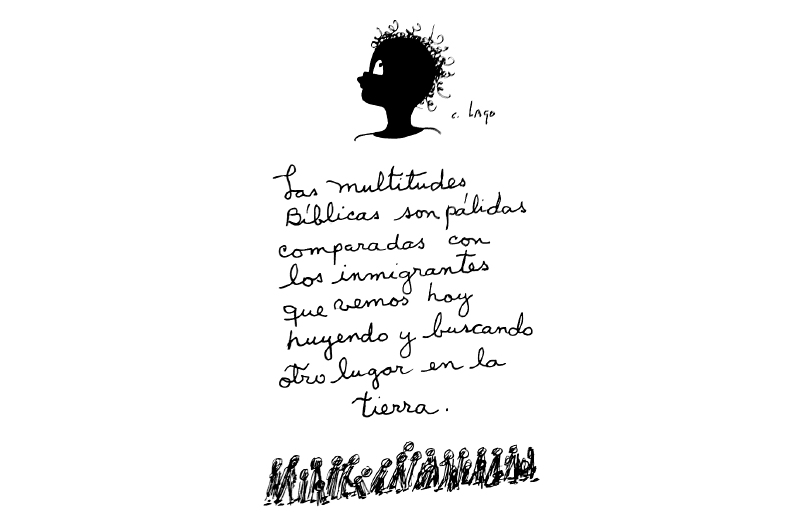 c. Lago
Las multitudes
Bíblicas son pálidas
comparadas con
los inmigrantes
que vemos hoy
huyendo y buscando
otro lugar en la
tierra.